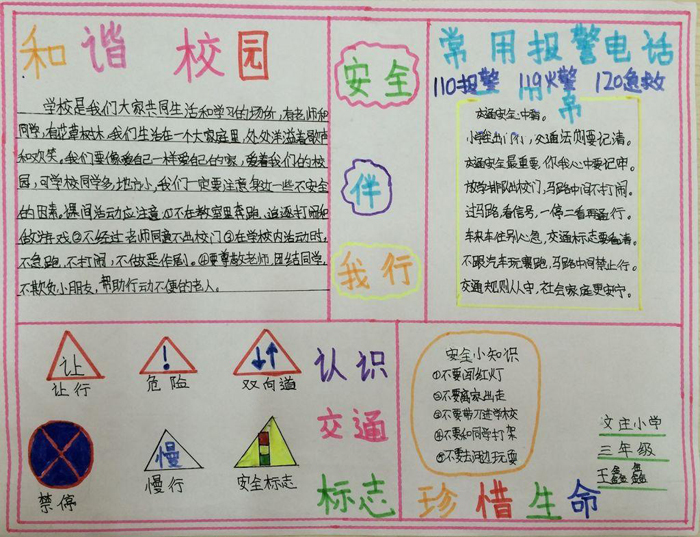 和谐 校园
学校是我们大家共同生活和学习的场所,有老师和
同学,有花草树木。我们生活在一个大家庭里,处处洋溢着歌声
和欢笑。我们要像爱自己一样爱自己的家,爱着我们的校
园,可学校同学多,地方小,我们一定要注意身边一些不安全
的因素。课间活动应注意①不在教室里奔跑、追逐打闹和
做游戏②不经过老师同意不出校门③在学校内活动时,
不急跑,不打闹,不做恶作剧。④要尊敬老师,团结同学,
不欺负小朋友,帮助行动不便的老人。
安全
伴
我行
常用报警电话
110报警 119火警 120急救
交通安全
小学生出门,交通法则要记清。
交通安全最重要,你我心中要记牢。
放学排队出校门,马路中间不打闹。
过马路,看信号,一停二看再通行。
车来车往别心急,交通标志要看清。
不跟汽车玩赛跑,马路中间禁止行。
交通规则人人守,社会家庭更安宁。
让
让行
!
危险
双向道
禁停
慢
慢行
安全标志
认识
交通
标志
安全小知识
①不要闯红灯
②不要离家出走
③不要带刀进学校
④不要和同学打架
⑤不要去河边玩耍
珍惜生命
文庄小学
三年级
王